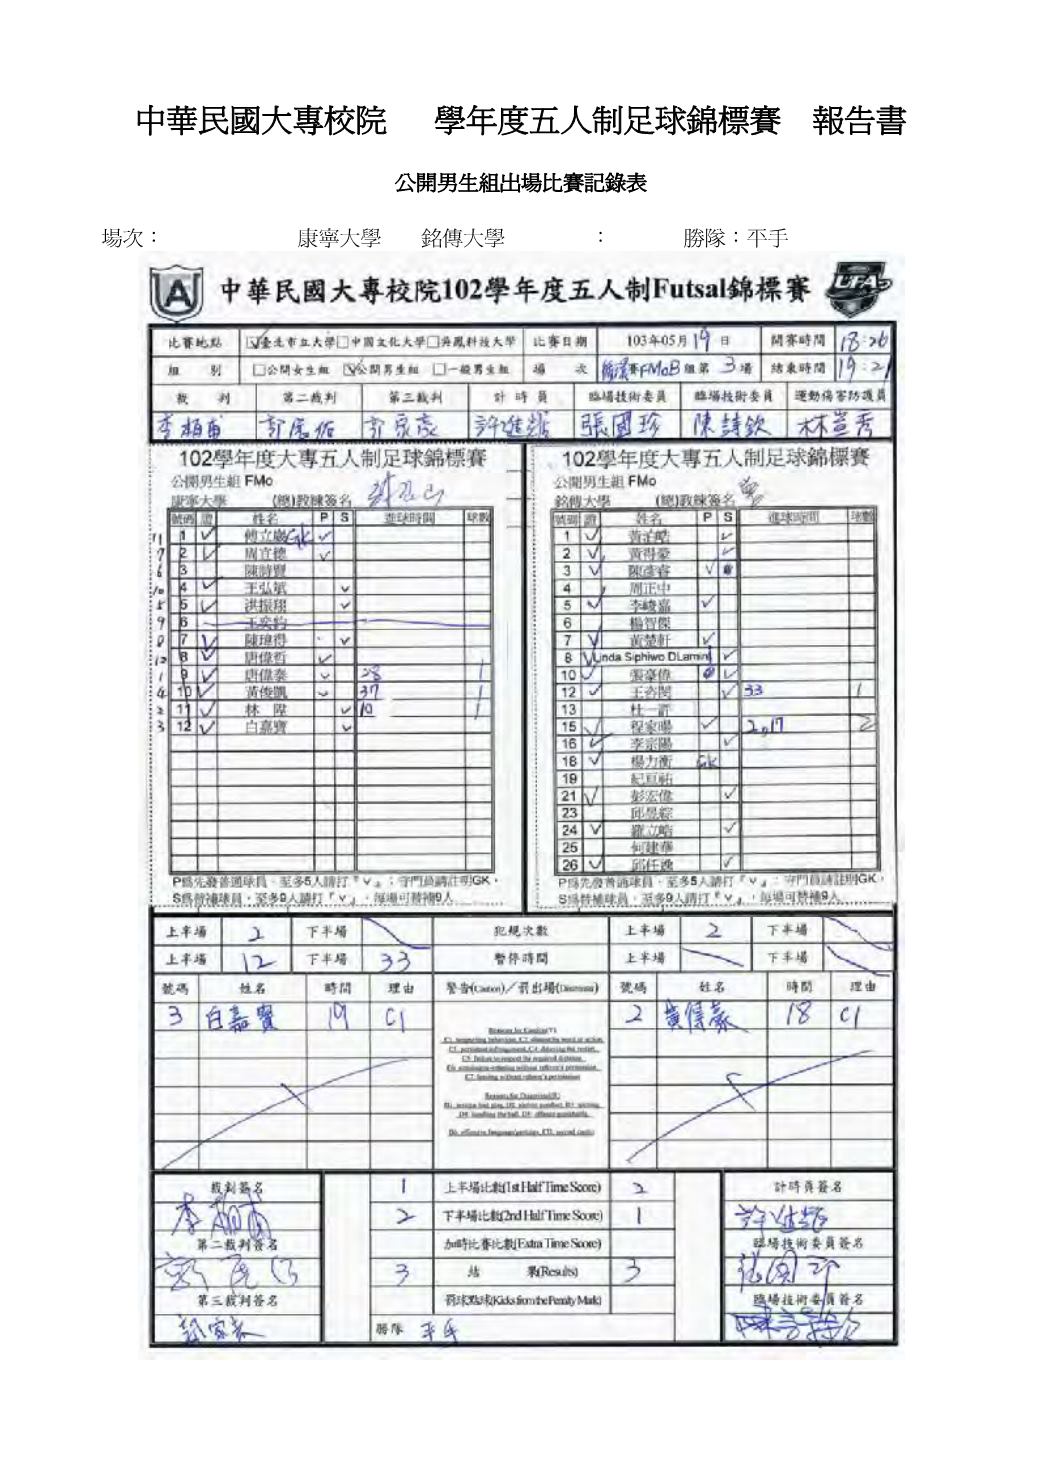 中華民國大專校院 學年度五人制足球錦標賽 報告書
公開男生組出場比賽記錄表
場次： 康寧大學 銘傳大學 ： 勝隊：平手
中華民國大專校院102學年度五人制Futsal錦標賽
比賽地點 ☑臺北市立大學□中國文化大學□吳鳳科技大學 比賽日期 103年05月19日 開賽時間 18:20
組別 □公開女生組 ☑公開男生組 □一般男生組 場次 循環賽FMoB組第3場 結束時間 19:21
裁判 第二裁判 第三裁判 計時員 臨場技術委員 臨場技術委員 運動傷害防護員
李柏甫 許進銘 張國珍 陳詩欽 林豈秀
102學年度大專五人制足球錦標賽
公開男生組 FMo
康寧大學 (總)教練簽名
號碼 證 姓名 P S 進球時間 球數
11 1 ✓ GK ✓
7 2 ✓ 周宜德 ✓
6 3
10 4 ✓ 王弘斌 ✓
5 5 ✓ 洪振翔 ✓
9 6
8 7 ✓ 陳瑋得 ✓
12 8 ✓ 唐偉哲 ✓
1 9 ✓ 唐偉泰 ✓ 28 1
4 10 ✓ 黃俊凱 ✓ 37 1
2 11 ✓ 林陞 ✓ 10 1
3 12 ✓ 白嘉寶 ✓
P為先發普通球員，至多5人請打『v』；守門員請註明GK，
S為替補球員，至多9人請打『v』，每場可替補9人
102學年度大專五人制足球錦標賽
公開男生組 FMo
銘傳大學 (總)教練簽名
號碼 證 姓名 P S 進球時間 球數
1 ✓ 黃泊皓 ✓
2 ✓ 黃得豪 ✓
3 ✓ 陳彥睿 ✓
4 周正中
5 ✓ 李峻嘉 ✓
6 楊智傑
7 ✓ 黃楚軒 ✓
8 ✓ Linda Siphiwo DLamini ✓
10 ✓ 張豪偉 ✓
12 ✓ ✓ 33 1
13 杜一許
15 ✓ 程家暘 ✓ 2,17 2
16 ✓ 李宗陽 ✓
18 ✓ 楊力衡 GK
19 紀亘祐
21 ✓ 彭宏偉 ✓
23 邱昱綜
24 ✓ 羅立皓 ✓
25 何建華
26 ✓ 邱任逸 ✓
P為先發普通球員，至多5人請打『v』；守門員請註明GK，
S為替補球員，至多9人請打『v』，每場可替補9人
上半場 2 下半場 犯規次數 上半場 2 下半場
上半場 12 下半場 33 暫停時間 上半場 下半場
號碼 姓名 時間 理由 警告(Caution)／罰出場(Dismissal) 號碼 姓名 時間 理由
3 白嘉寶 19 C1 2 黃得豪 18 C1
裁判簽名 1 上半場比數(1st Half Time Score) 2 計時員簽名
李柏甫 2 下半場比數(2nd Half Time Score) 1 許進銘
第二裁判簽名 加時比賽比數(Extra Time Score) 臨場技術委員簽名
3 結果(Results) 3 張國珍
第三裁判簽名 罰球點球(Kicks from the Penalty Mark) 臨場技術委員簽名
勝隊 平手 陳詩欽